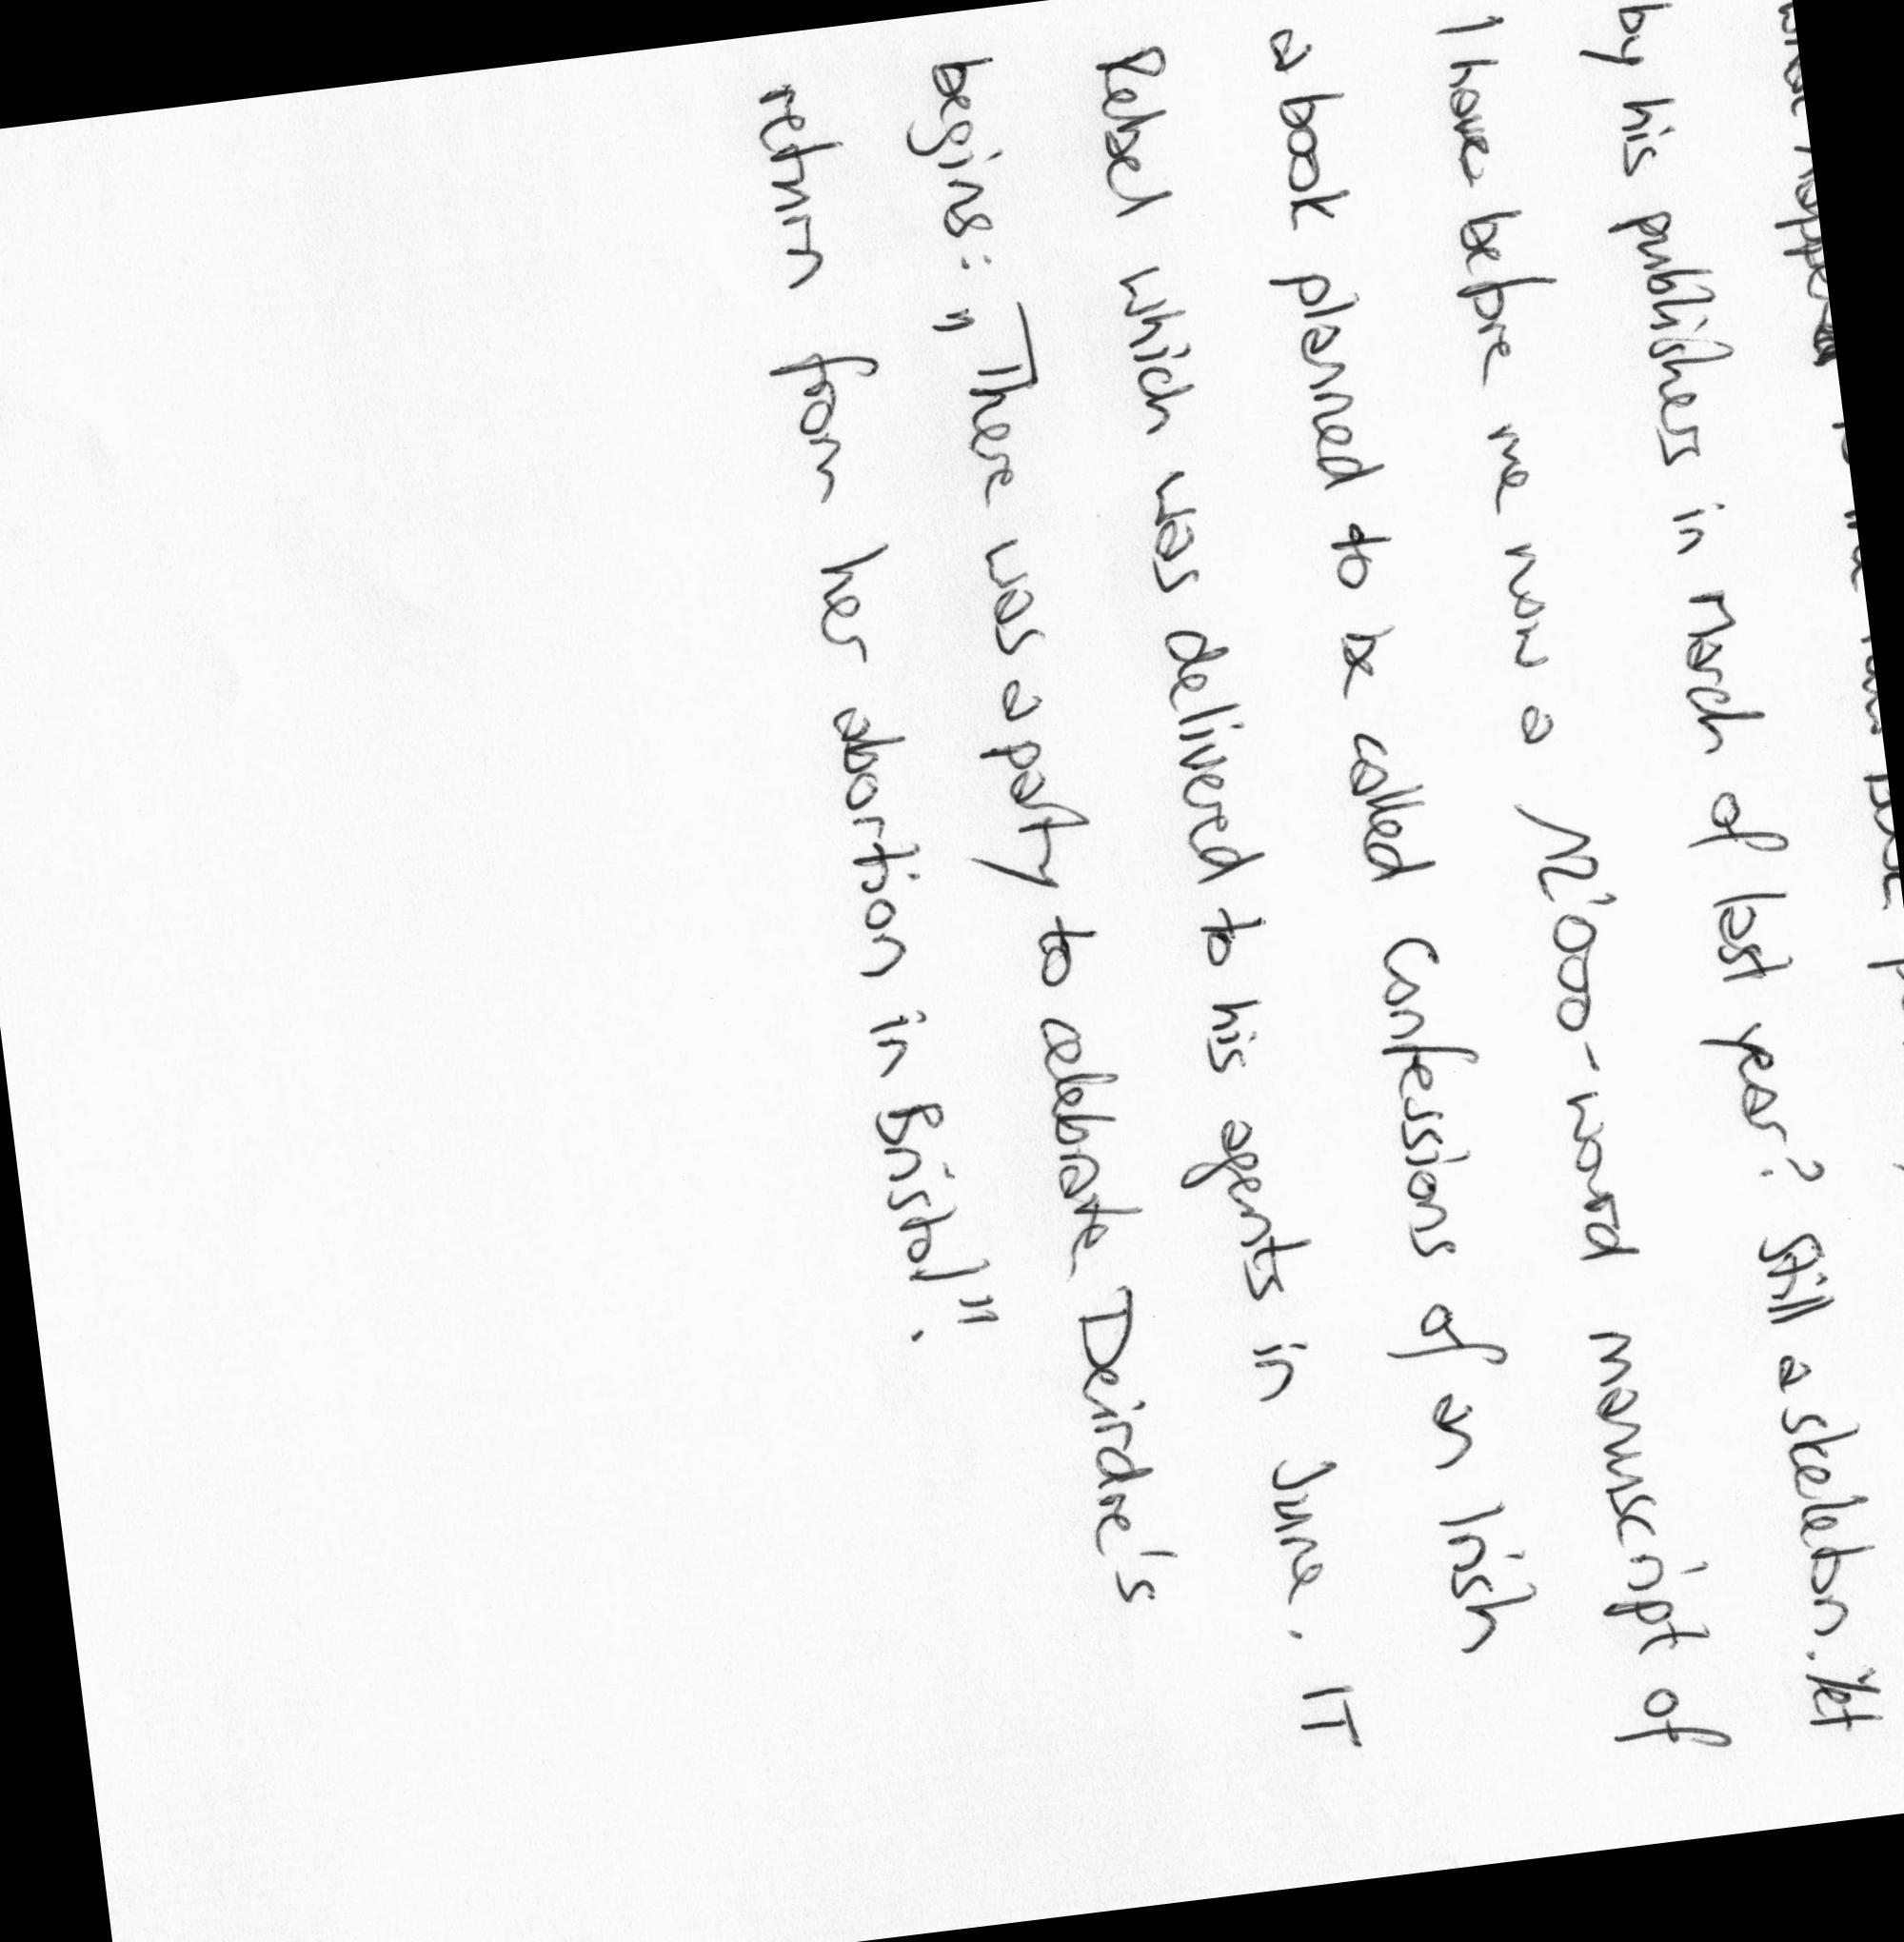 what happened to the
by his publishers in March of last year? Still a skeleton. Yet
I have before me now a 12'000-word manuscript of
a book planned to be called Confessions of an Irish
Rebel which was delivered to his agents in June. IT
begins: "There was a party to celebrate Deirdre's
return from her abortion in Bristol".